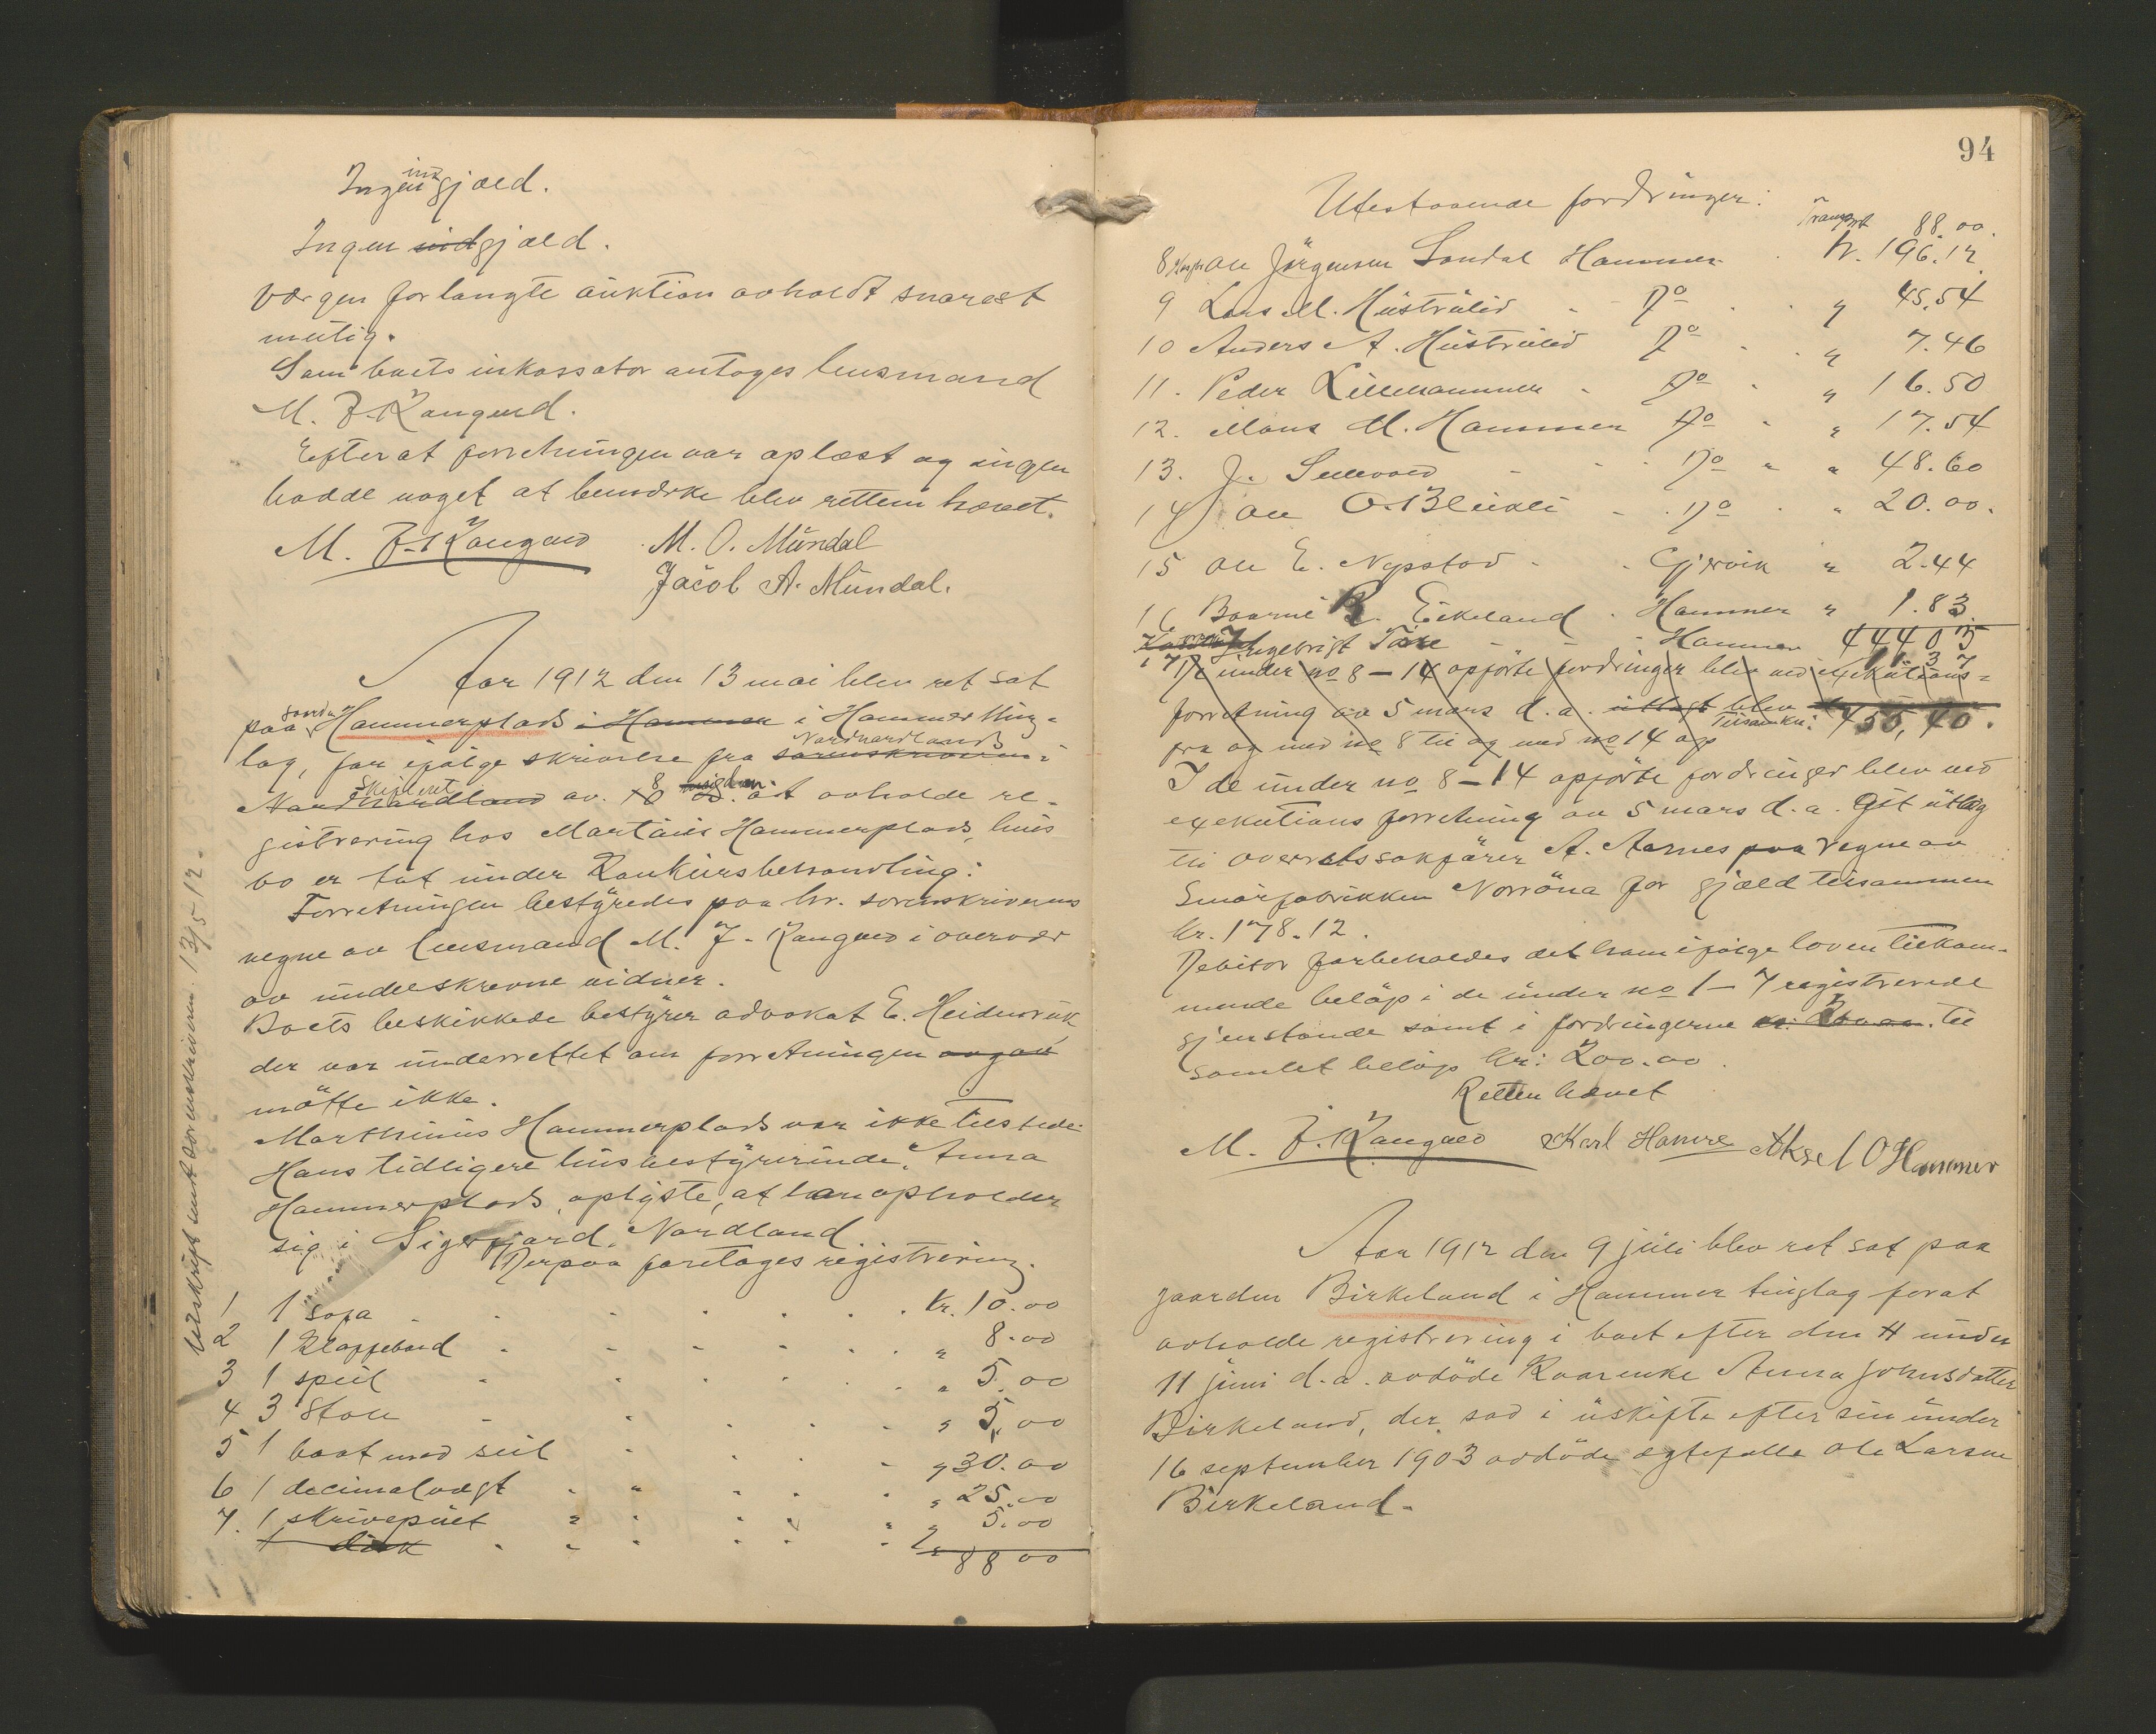 Ingen indgjæld.
Ingen indgjæld.
Værgen forlangte auktion avholdt snarest
mulig.
Som boets inkassator antoges lensmand
M. J. Kangued.
Efterat forretningen var oplæst og ingen
hadde noget at bemerke blev retten hævet.
M. J. Kanguæd M. O. Mündal
Jacob A. Mündal.
Utskrift sendt sorenskriveren 13/5 12.
Aar 1912 den 13 mai blev ret sat
paa gaarden Hammersplads i Hammer i Hammer ting-
lag, for ifølge skrivelse fra sorenskriveren i Nordhordlands
Nordhordland skifteret av 8 ds. at avholde re-
gistrering hos Martinus Hammersplads, hvis
bo er tat under Konkursbehandling:
Forretningen bestyredes paa hr. sorenskriverens
vegne av lensmand M. J. Kanguæd i overvær
av underskrevne vidner.
Boets beskikkede bestyrer advokat E. Heidenreich
der var underrettet om forretningen
møtte ikke.
Marthinus Hammersplads var ikke tilstede.
Hans tidligere husbestyrerinde, Anna
Hammersplads, oplyste, at han opholder
sig i Sigerfjord, Nordland
Derpaa foretoges registrering.
1 1 sofa Kr. 10.00
2 1 Klappebord " 8.00
3 1 speil " 5.00
4 3 Stole " 5,00
5 1 baat med seil " 30.00
6 1 decimalvægt " 25.00
7. 1 skrivepult " 5.00
1 disk "
88 00
94
Utestaaende fordringer:
Transport 88.00.
8 Ole Jørgensen Sondal Hammer kr. 196.12
9 Lars M. Hustrulid Do " 45.54
10 Anders A. Hustrulid Do " 7.46
11. Peder Lillehammer Do " 16.50
12. Mons M. Hammer Do " 17.54
13. J. Sellevold Do " 48.60
14 Ole O. Blindli Do " 20.00.
15 Ole E. Nypstod Gjervik " 2.44
16 Baarne R. Eikeland Hammer " 1.83
444 03
17 Ingebrigt Tare Hammer 11 37
De under no 8 - 14 opførte fordringer blev ved exekutions-
forretning av 5 mars d.a. utlagt blev Tilsammen: 455,40.
fra og med no 8 til og med no 14 op
I de under no 8 - 14 opførte fordringer blev ved
exekutions forretning av 5 mars d.a. git utlæg
til overretssakfører A. Aarnes paa vegne av
Smørfabrikken Norrøna for gjæld tilsammen
kr. 178.12.
Debitor forbeholdes det ham ifølge loven tilkom-
mende beløp i de under no 1 - 7 registrerede
gjenstande samt i fordringerne kr. 200.00. til
samlet beløp kr: 200.00.
Retten hævet
M. J. Kanguæd Karl Hamre Aksel O Hammer
Aar 1912 den 9 juli blev ret sat paa
gaarden Birkeland i Hammer tinglag forat
avholde registrering i boet efter den H under
11 juni d.a. avdøde Kaarenke Anna Johnsdatter
Birkeland, der sad i uskifte efter sin under
16 september 1903 avdøde ægtefælle Ole Larsen
Birkeland.